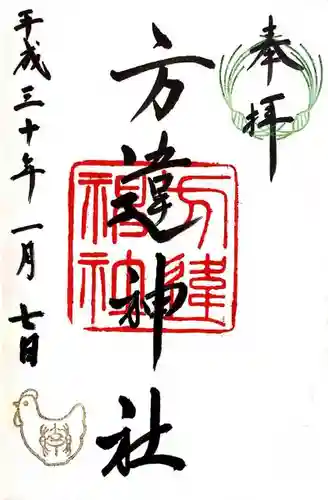 奉拝
方違神社
方違
神社
平成三十年一月七日